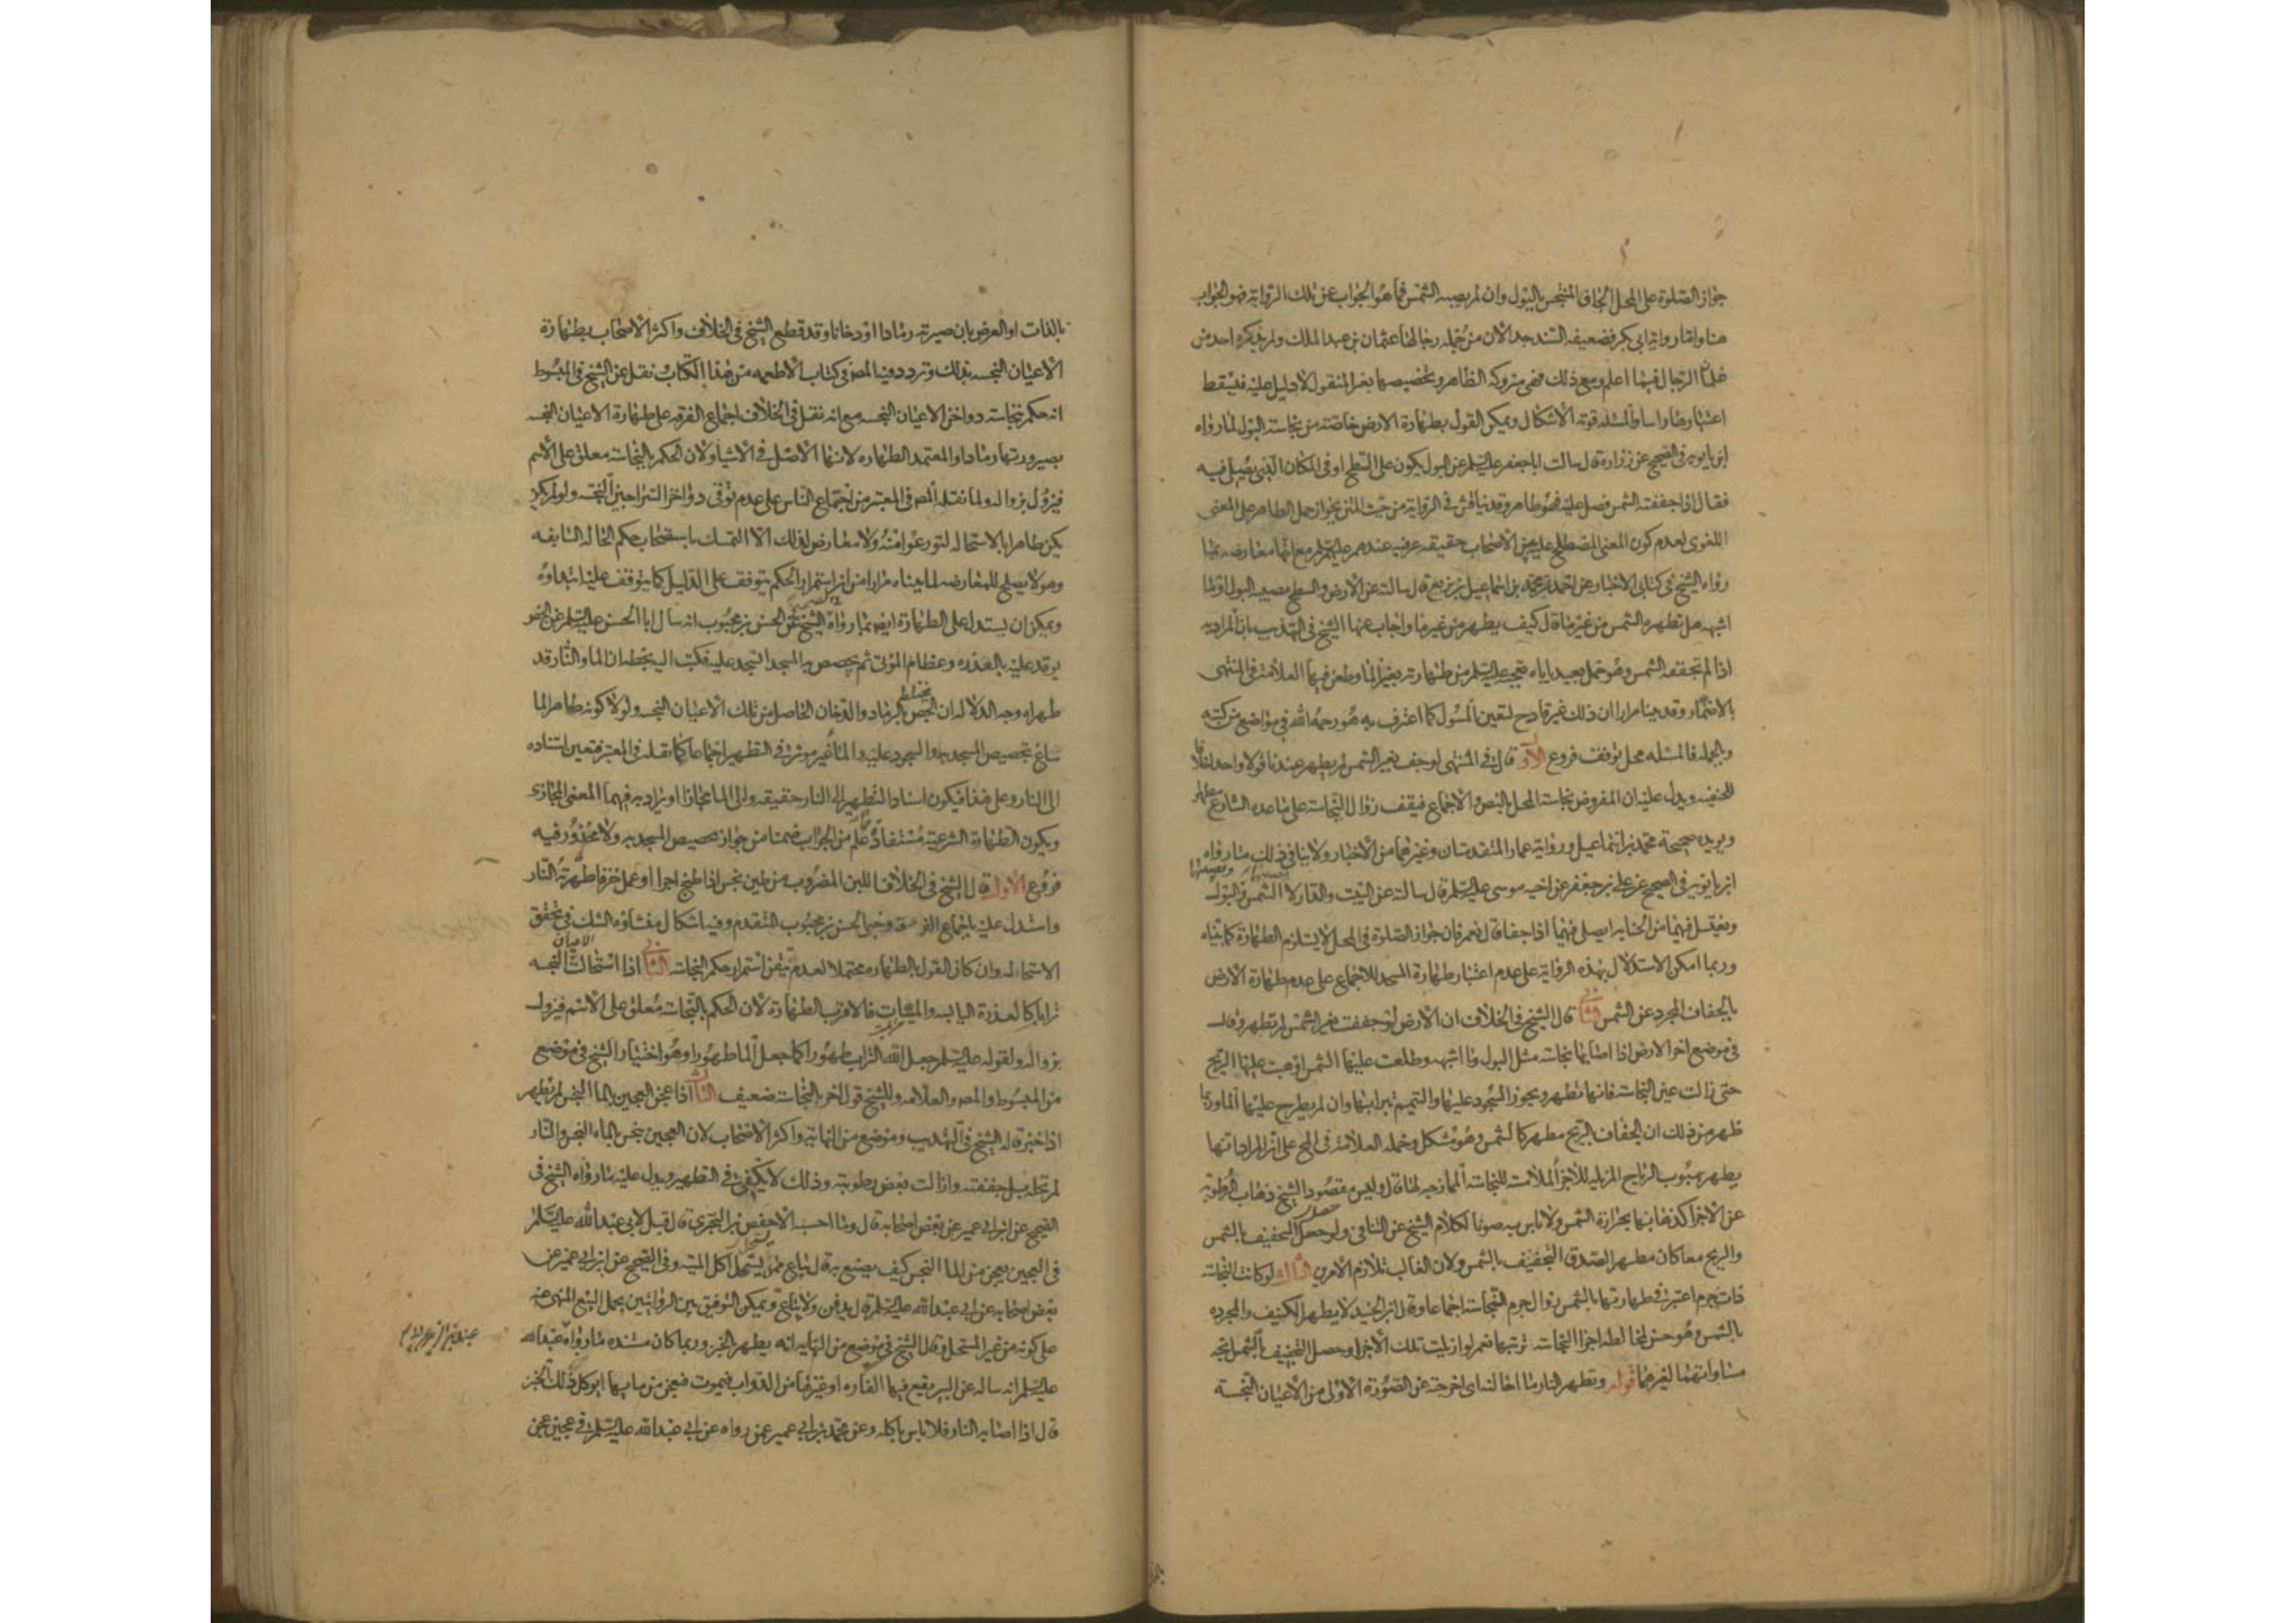 جواز الصلوة على المحل الجاف المتنجس بالبول وان لم يصبه الشمس فما هو الجواب عن تلك الرواية فهو الجواب
هنا واما رواية ابى بكر فضعيفة السند جدا لان من جملة رجالها عثمان بن عبد الملك ولم يذكره احد من
علماء الرجال فيما اعلم ومع ذلك فهى متروكة الظاهر وتخصيصها بغير المنقول لا دليل عليه فيسقط
اعتبارها راسا والمسئله قوية الاشكال ويمكن القول بطهارة الارض خاصة من نجاسة البول لما رواه
ابن بابويه فى الصحيح عن زرارة قال سالت ابا جعفر عليه السلم عن البول يكون على السطح او فى المكان الذى يصلى فيه
فقال اذا جففته الشمس فصل عليه فهو طاهر وقد يناقش فى الرواية من حيث المتن بجواز حمل الطاهر على المعنى
اللغوى لعدم كون المعنى المصطلح عليه بين الاصحاب حقيقه عرفيه عندهم عليهم السلم مع انها معارضه بما
رواه الشيخ فى كتابى الاخبار عن احمد بن محمد بن اسماعيل بن بزيع قال سالته عن الارض والسطح يصيبه البول او ما
اشبهه هل تطهره الشمس من غير ماء قال كيف يطهر من غير ماء واجاب عنها الشيخ فى التهذيب بان المراد به
اذا لم تجففه الشمس وهو حمل بعيد اباه تعجبه عليه السلم من طهارته بغير الماء وطعن فيها العلامة فى المنتهى
بالاضمار وقد بينا مرارا ان ذلك غير قادح لتعين المسئول كما اعترف به هو رحمه الله فى مواضع من كتبه
وبالجمله فالمسئله محل توقف فروع الاول قال فى المنتهى لو جف بغير الشمس لم يطهر عندنا قولا واحدا خلافا
للحنفيه ويدل عليه ان المفروض نجاسة المحل بالنص والاجماع فيقف زوال النجاسة على ما عده الشارع مطهرا
ويويده صحيحة محمد بن اسماعيل ورواية عمار المتقدمتان وغيرهما من الاخبار ولا ينافى ذلك ما رواه
ابن بابويه فى الصحيح عن على بن جعفر عن اخيه موسى عليه السلم قال سالته عن البيت والدار لا تصيبهما الشمس ويصيبهما البول
ويغتسل فيهما من الجنابه ايصلى فيهما اذا جفا قال نعم فان جواز الصلوة فى المحل لا يستلزم الطهارة كما بيناه
وربما امكن الاستدلال بهذه الرواية على عدم اعتبار طهارة المسجد للاجماع على عدم طهارة الارض
بالجفاف المجرد عن الشمس الثانى قال الشيخ فى الخلاف ان الارض لو جففت بغير الشمس لم تطهر وقال
فى موضع اخر الارض اذا اصابها نجاسة مثل البول وما اشبهه وطلعت عليها الشمس او هبت عليها الريح
حتى زالت عين النجاسة فانها تطهر ويجوز السجود عليها والتيمم بترابها وان لم يطرح عليها الماء وربما
ظهر من ذلك ان الجفاف بالريح مطهر كالشمس وهو مشكل وحمله العلامة فى المخ على ان المراد انها
يطهر بهبوب الرياح المزيله للاجزاء الملاقية للنجاسة الممازجه لها قال وليس مقصود الشيخ ذهاب الرطوبة
عن الاجزاء كذهابها بحرارة الشمس ولا باس به صونا لكلام الشيخ عن التنافى ولو حصل التجفيف بالشمس
والريح معا كان مطهرا لصدق التجفيف بالشمس ولان الغالب تلازم الامرين الثالث لو كانت النجاسة
ذات جرم اعتبر فى طهارتها بالشمس زوال جرم النجاسة اجماعا وقال ابن الجنيد لا يطهر الكنيف والمجزره
بالشمس وهو حسن لمخالطة اجزاء النجاسة تربتهما نعم لو ازيلت تلك الاجزاء وحصل التجفيف بالشمس اتجه
مساواتهما لغيرهما قوله وتطهر النار ما احالته اى اخرجته عن الصورة الاولى من الاعيان النجسة
بالذات او العرض بان صيرته رمادا او دخانا وقد قطع الشيخ فى الخلاف واكثر الاصحاب بطهارة
الاعيان النجسه بذلك وتردد فيه المصنف فى كتاب الاطعمه من هذا الكتاب نقل عن الشيخ فى المبسوط
انه حكم بنجاسة دواخن الاعيان النجسه مع انه نقل فى الخلاف اجماع الفرقه على طهارة الاعيان النجسه
بصيرورتها رمادا والمعتمد الطهاره لانها الاصل فى الاشياء ولان الحكم بالنجاسة معلق على الاسم
فيزول بزواله ولما نقله المصه فى المعتبر من اجماع الناس على عدم توقى دواخن السراجين النجسه ولو لم يكن
يكن طاهرا بالاستحاله لتورعوا منه ولا معارض لذلك الا التمسك باستصحاب حكم الحاله السابقه
وهو لا يصلح للمعارضه لما بيناه مرارا من ان استمرار الحكم يتوقف على الدليل كما يتوقف عليه ابتداؤه
ويمكن ان يستدل على الطهارة ايضا بما رواه الشيخ فى الصحيح عن الحسن بن محبوب انه سال ابا الحسن عليه السلم عن الجص
يوقد عليه بالعذره وعظام الموتى ثم يجصص به المسجد ايسجد عليه فكتب اليه بخطه ان الماء والنار قد
طهراه وجه الدلاله ان الجص يختلط بالرماد والدخان الحاصل من تلك الاعيان النجسه ولولا كونه طاهرا لما
ساغ تجصيص المسجد به والسجود عليه والماء غير موثر فى التطهير اجماعا كما نقله فى المعتبر فتعين استناده
الى النار وعلى هذا فيكون اسناد التطهير الى النار حقيقه والى الماء مجازا او يراد به فيهما المعنى المجازى
ويكون الطهارة الشرعية مستفادة مما علم من الجواب ضمنا من جواز تجصيص المسجد به ولا محذور فيه
فروع الاول قال الشيخ فى الخلاف اللبن المضروب من طين نجس اذا طبخ اجرا او عمل خزفا طهرته النار
واستدل عليه باجماع الفرقة وخبر الحسن بن محبوب المتقدم وفيه اشكال منشاؤه الشك فى تحقق
الاستحاله وان كان القول بالطهاره محتملا لعدم تيقن استمرار حكم النجاسة الثانى اذا استحالت الاعيان النجسه
ترابا كالعذرة اليابسه والميتات فالاقرب الطهارة لان الحكم بالنجاسة معلق على الاسم فيزول
بزواله ولقوله عليه السلم جعل الله التراب طهورا كما جعل الماء طهورا وهو اختيار الشيخ فى موضع
من المبسوط والمصه والعلامه وللشيخ قول اخر بالنجاسة ضعيف الثالث اذا عجن العجين بالماء النجس لم تطهر
اذا خبز قاله الشيخ فى التهذيب وموضع من النهاية واكثر الاصحاب لان العجين ينجس بالماء النجس والنار
لم تحله بل جففته وازالت بعض رطوبته وذلك لا يكفى فى التطهير ويدل عليه ما رواه الشيخ فى
الصحيح عن ابن ابى عمير عن بعض اصحابه قال وما احسبه الا حفص بن البخترى قال قيل لابى عبد الله عليه السلم
فى العجين يعجن من الماء النجس كيف يصنع به قال يباع ممن يستحل اكل الميته وفى الصحيح عن ابن ابى عمير عن
بعض اصحابه عن ابى عبد الله عليه السلم قال يدفن ولا يباع ويمكن التوفيق بين الروايتين بحمل البيع المنهى عنه
على كونه من غير المستحل وقال الشيخ فى موضع من النهايه انه يطهر بالخبز وربما كان مستنده ما رواه عبد الله
عليه السلم انه ساله عن البئر يقع فيها الفاره او غيرها من الدواب فيموت فيعجن من مائها ايوكل ذلك الخبز
قال اذا اصابته النار فلا باس باكله وعن محمد بن ابى عمير عمن رواه عن ابى عبد الله عليه السلم فى عجين عجن